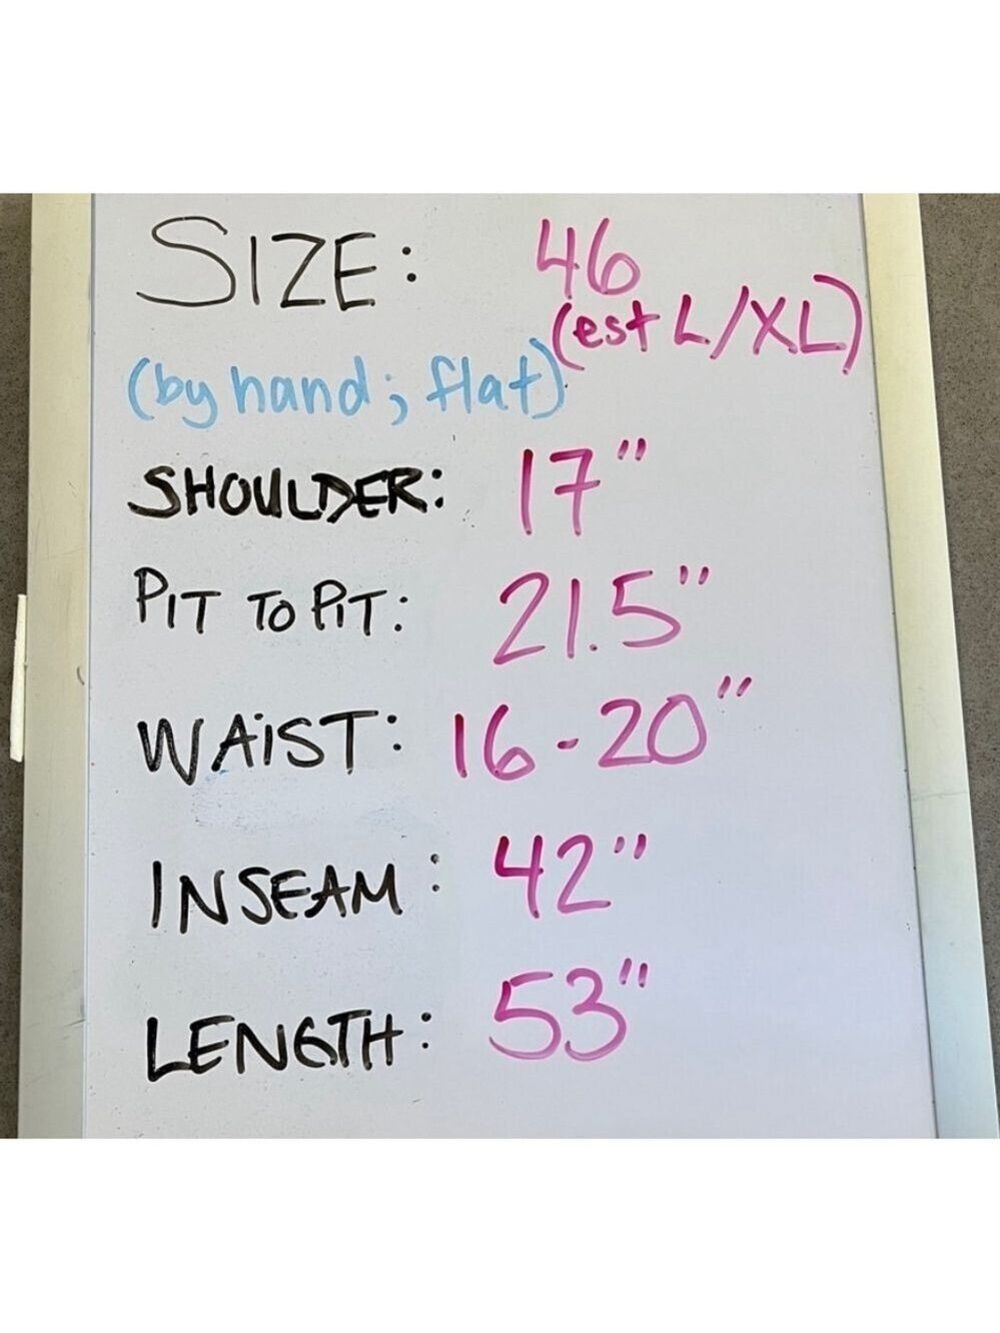 SIZE: 46
(est L/XL)
(by hand; flat)
SHOULDER: 17"
PIT TO PIT: 21.5"
WAiST: 16-20"
INSEAM: 42"
LENGTH: 53"